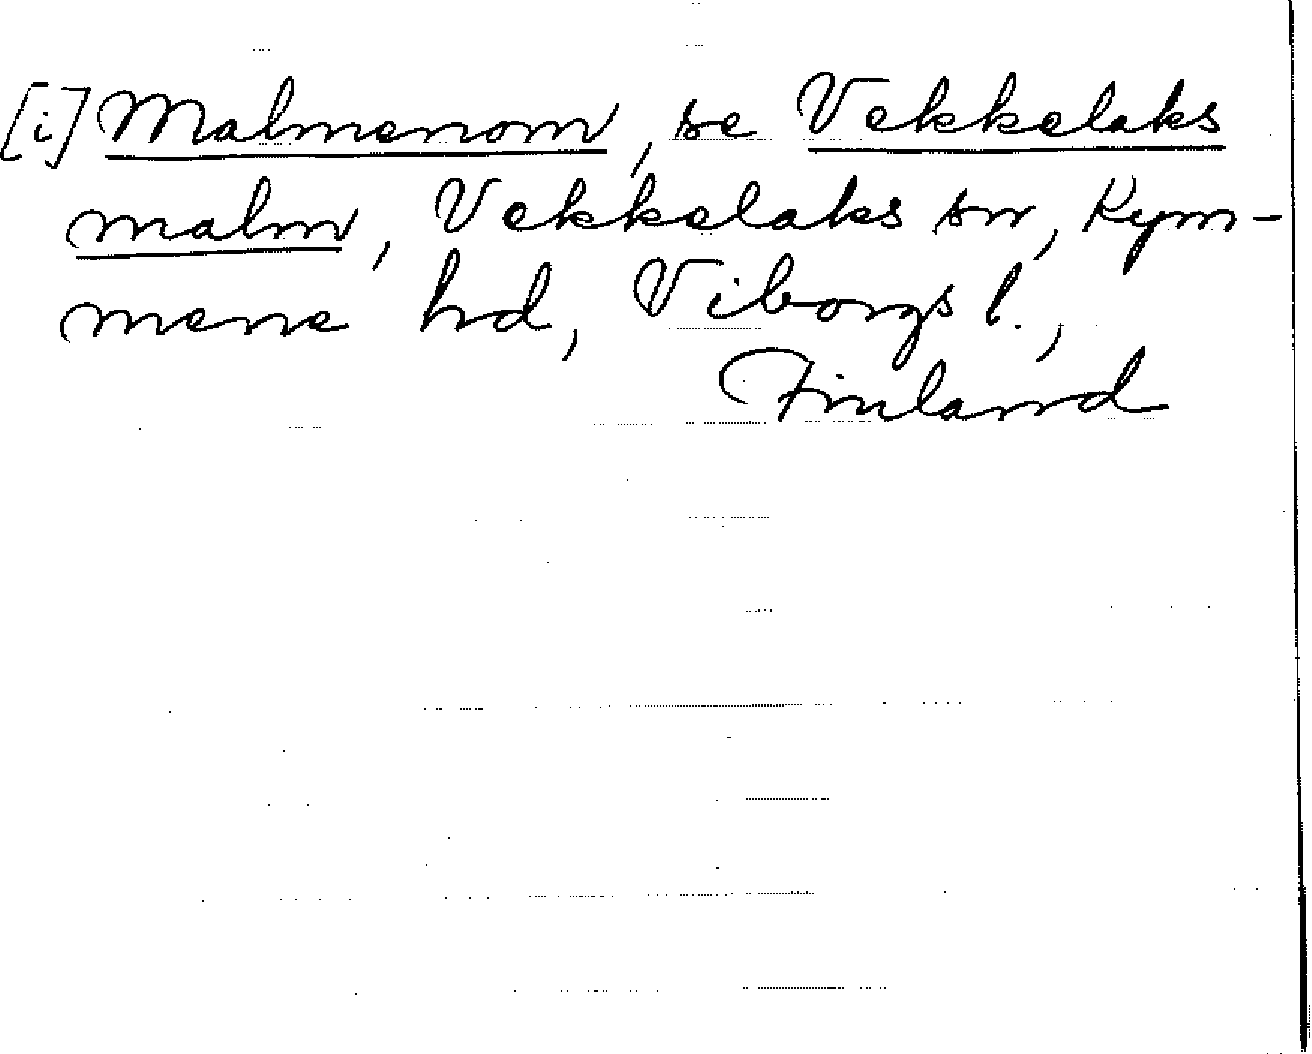 [i] Malmenom, se Vekkelaks
malm, Vekkelaks sn, Kym-
mene hd, Viborgs l.,
Finland